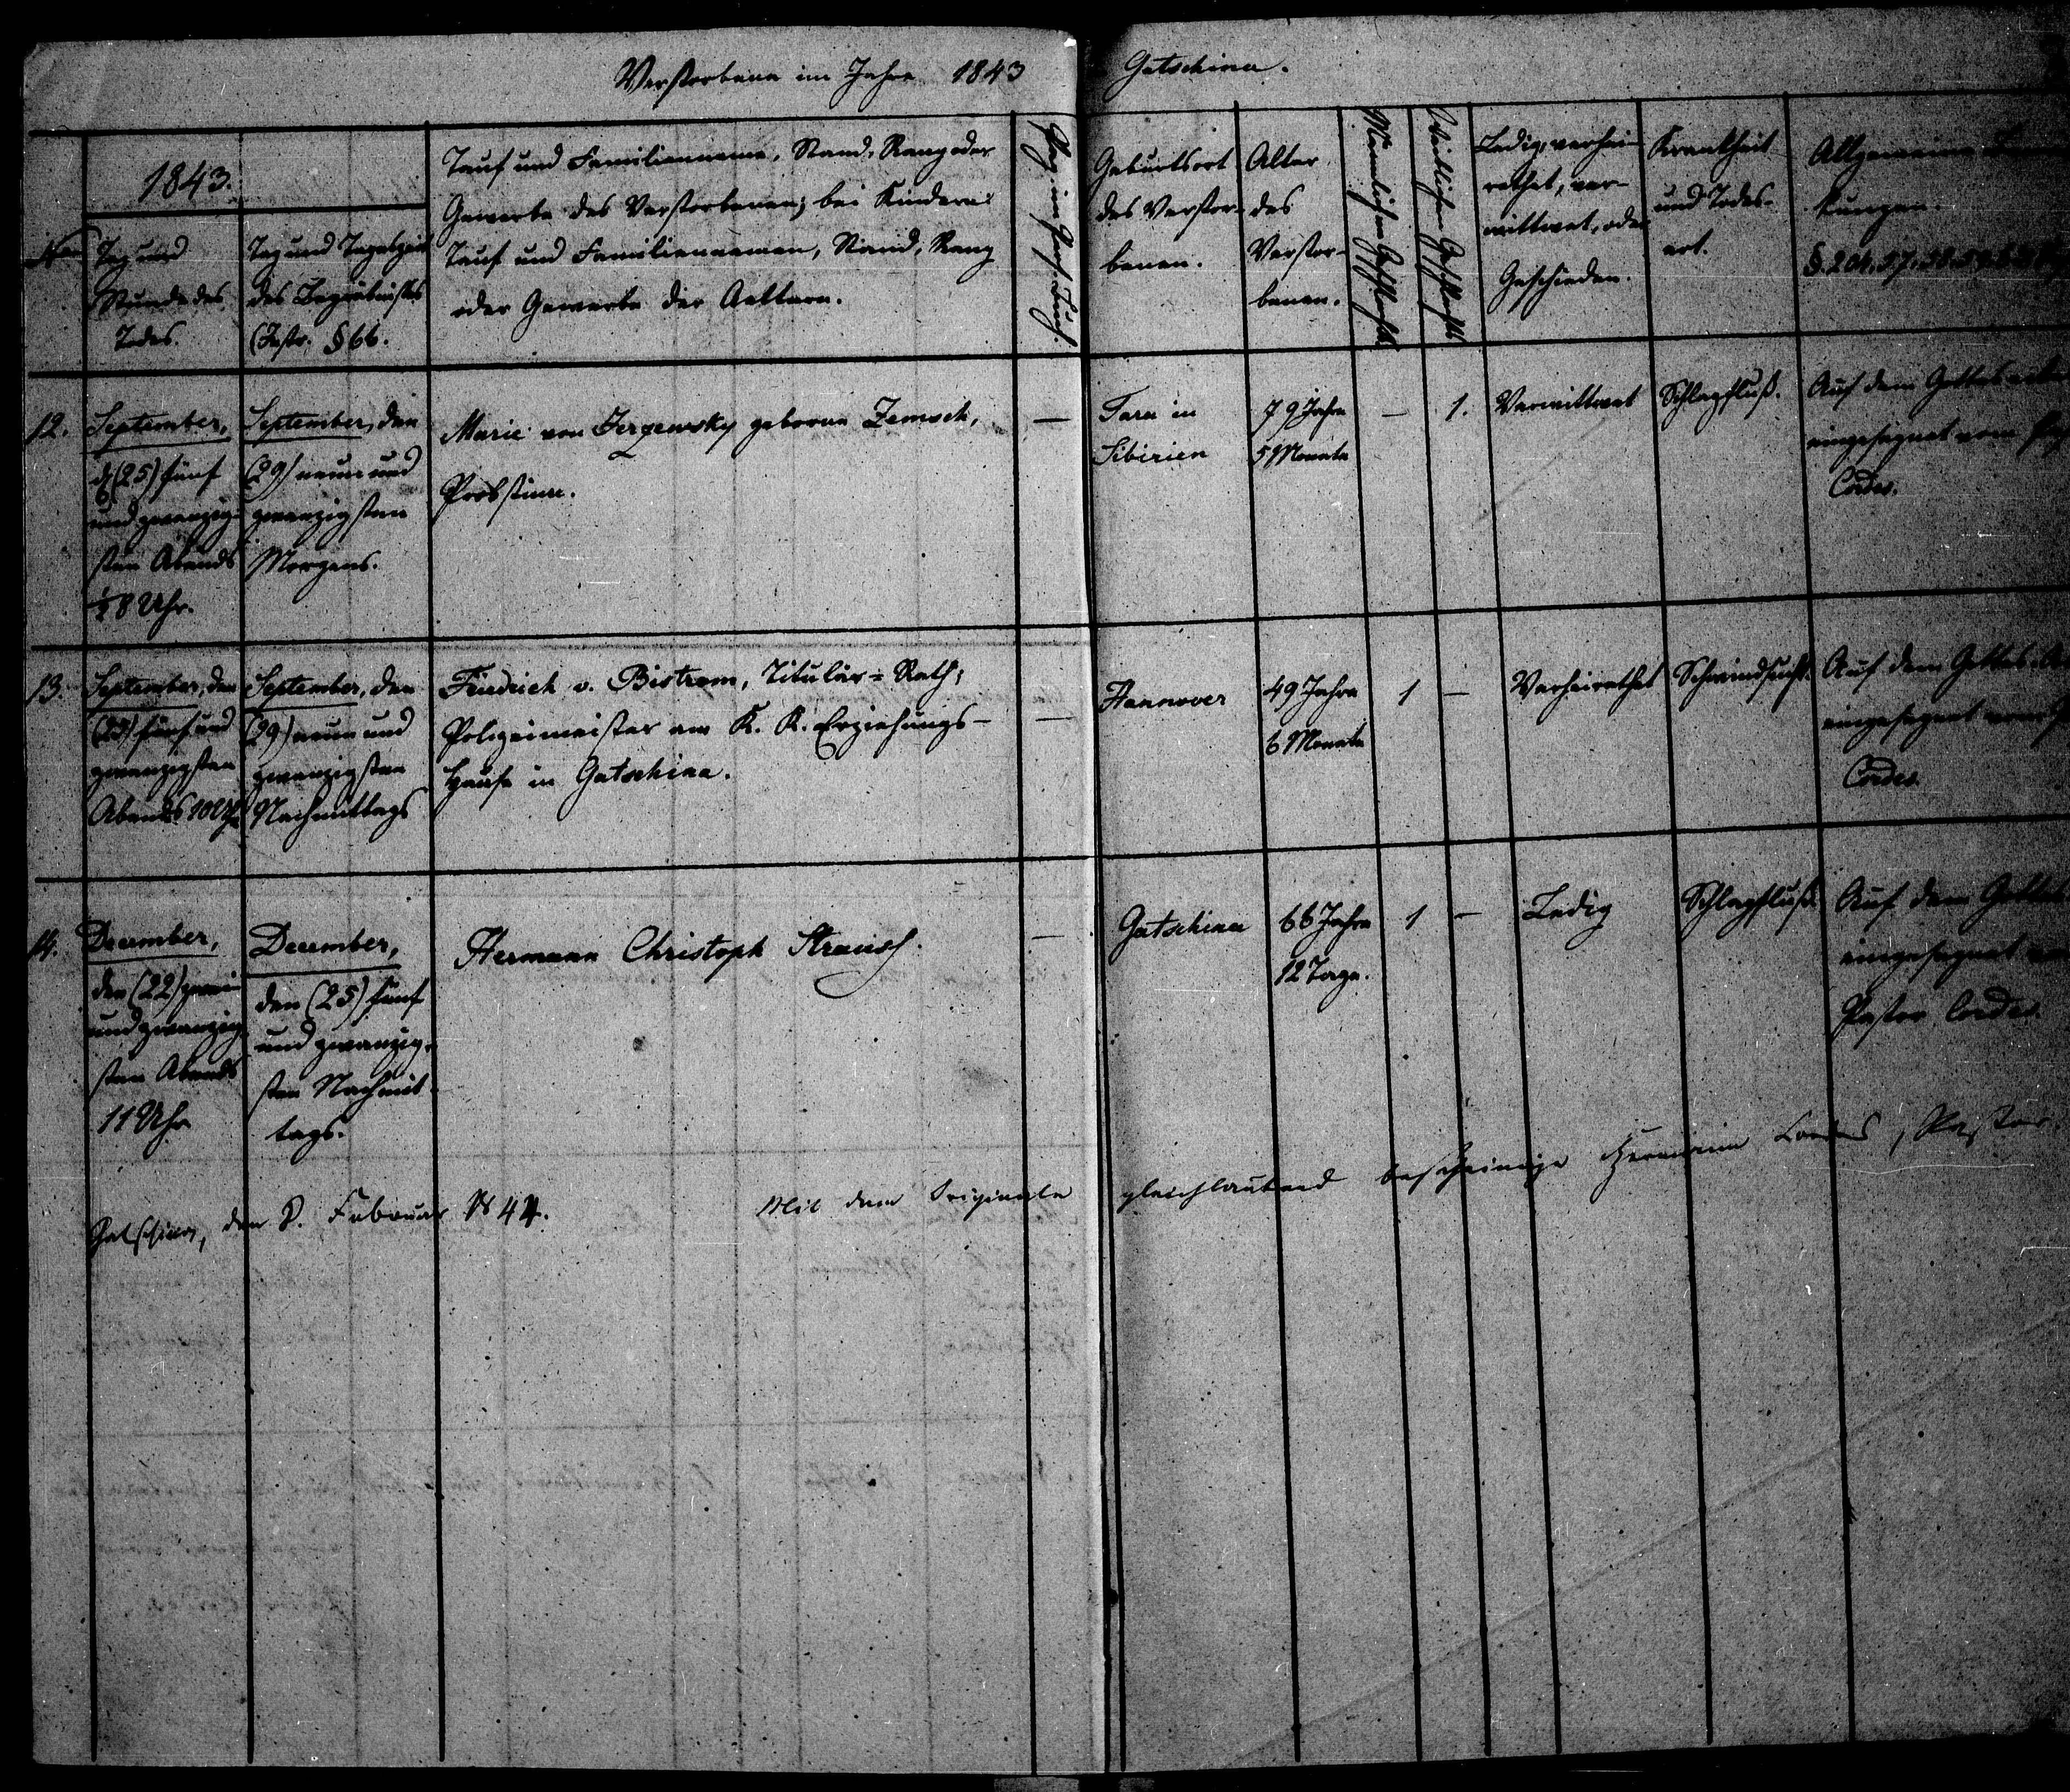 Verstorbene im Jahre 1843 Gatschina.
1843.
Nro
Tag und
Stunde des
Todes.
Tag und Tageszeit
des Begräbnisses
(Instr. § 66.
Tauf und Familienname, Stand, Rang oder
Gewerbe des Verstorbenen; bei Kindern:
Tauf und Familiennamen, Stand, Rang
oder Gewerbe der Aeltern.
Pag. im Pers. Buch.
Geburtsort
des Verstor-
benen.
Alter
des
Verstor-
benen.
Männlichen Geschlechts
Weiblichen Geschlechts
Ledig, verhei-
rathet, ver-
wittwet, oder
Geschieden.
Krankheit
und Todes-
art.
Allgemeine
kungen.
12.
September,
d (25) fünf
und zwanzig-
sten Abends
½ 8 Uhr.
September, den
(29) neun und
zwanzigsten
Morgens.
Marie von geborne Zemsch,
Probstinn.
—
Tara in
Sibirien
79 Jahre
5 Monate
—
1.
Verwittwet
Schlagfluß.
Auf dem
eingesegnet vom
Cordes.
13.
September, den
(25) fünf und
zwanzigsten
Abends 10 Uhr
September, den
(29) neun und
zwanzigsten
Nachmittags
Friedrich v. Bistrom, Titulär-Rath;
Polizeimeister am K. K. Erziehungs-
Hause in Gatschina.
—
Hannover
49 Jahre
6 Monate
1
—
Verheirathet
Schwindsucht.
Auf dem Gottes-
eingesegnet vom
Cordes.
14.
December,
den (22) zwei
und zwanzig-
sten Abends
11 Uhr
December,
den (25) fünf
und zwanzig-
sten Nachmit-
tags.
Hermann Christoph Strauss.
—
Gatschina
66 Jahre
12 Tage.
1
—
Ledig
Schlagfluß.
Auf dem
eingesegnet
Pastor Cordes.
Gatschina, den 8. Februar 1844. Mit dem Originale gleichlautend bescheinige Cordes, Pastor.